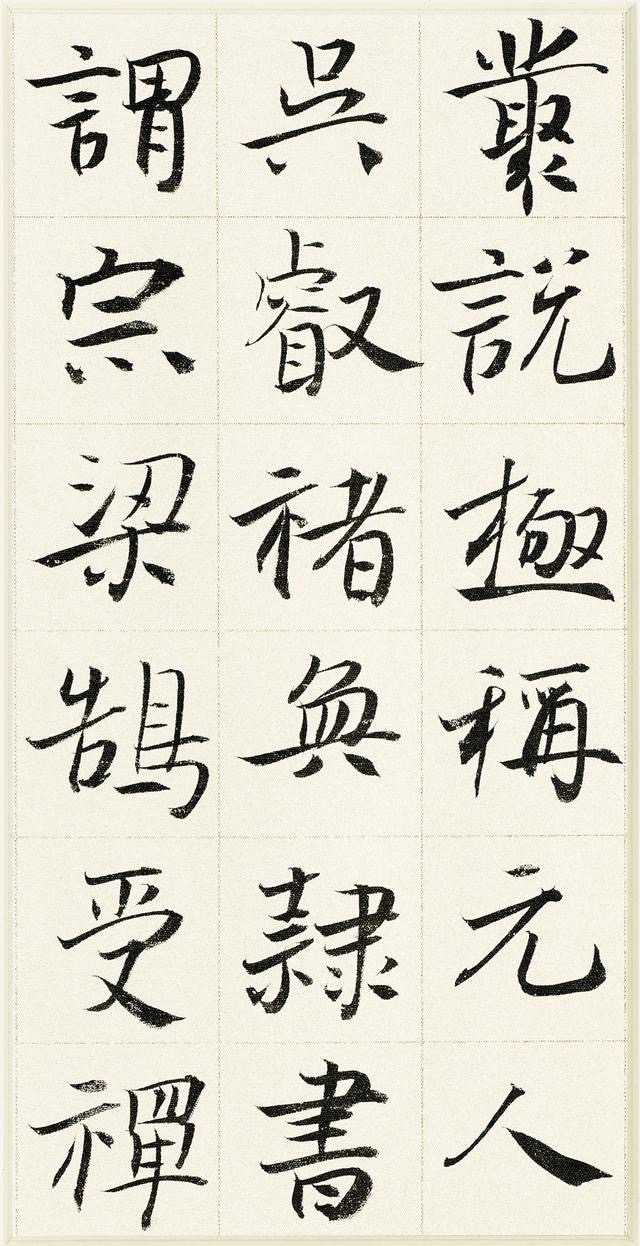 叢說極稱元人
吳叡褚奐隸書
謂宗梁鵠受禪